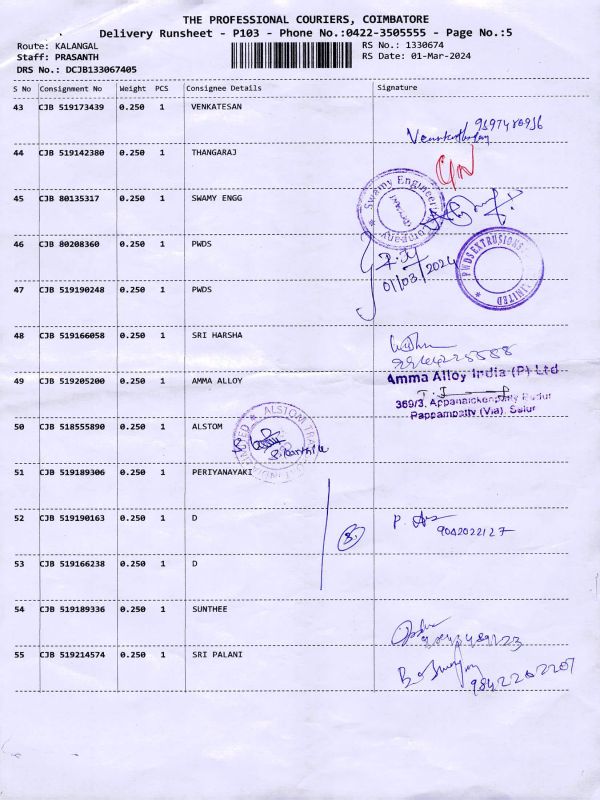 THE PROFESSIONAL COURIERS, COIMBATORE
Delivery Runsheet - P103 - Phone No.:0422-3505555 - Page No.:5
Route: KALANGAL
RS No.: 1330674
Staff: PRASANTH
RS Date: 01-Mar-2024
DRS No.: DCJB133067405
S No Consignment No Weight PCS Consignee Details Signature
43 CJB 519173439 0.250 1 VENKATESAN
44 CJB 519142380 0.250 1 THANGARAJ
45 CJB 80135317 0.250 1 SWAMY ENGG
Swamy Engineering Company
46 CJB 80208360 0.250 1 PWDS
01/03/2024
PWDS EXTRUSIONS LIMITED
47 CJB 519190248 0.250 1 PWDS
48 CJB 519166058 0.250 1 SRI HARSHA
49 CJB 519205200 0.250 1 AMMA ALLOY
Amma Alloy India (P) Ltd
369/3, Appanaickenpatty Pudur
Pappampatty (Via), Sulur
50 CJB 518555890 0.250 1 ALSTOM
ALSTOM
51 CJB 519189306 0.250 1 PERIYANAYAKI
52 CJB 519190163 0.250 1 D
9042022127
53 CJB 519166238 0.250 1 D
54 CJB 519189336 0.250 1 SUNTHEE
55 CJB 519214574 0.250 1 SRI PALANI
9842202207